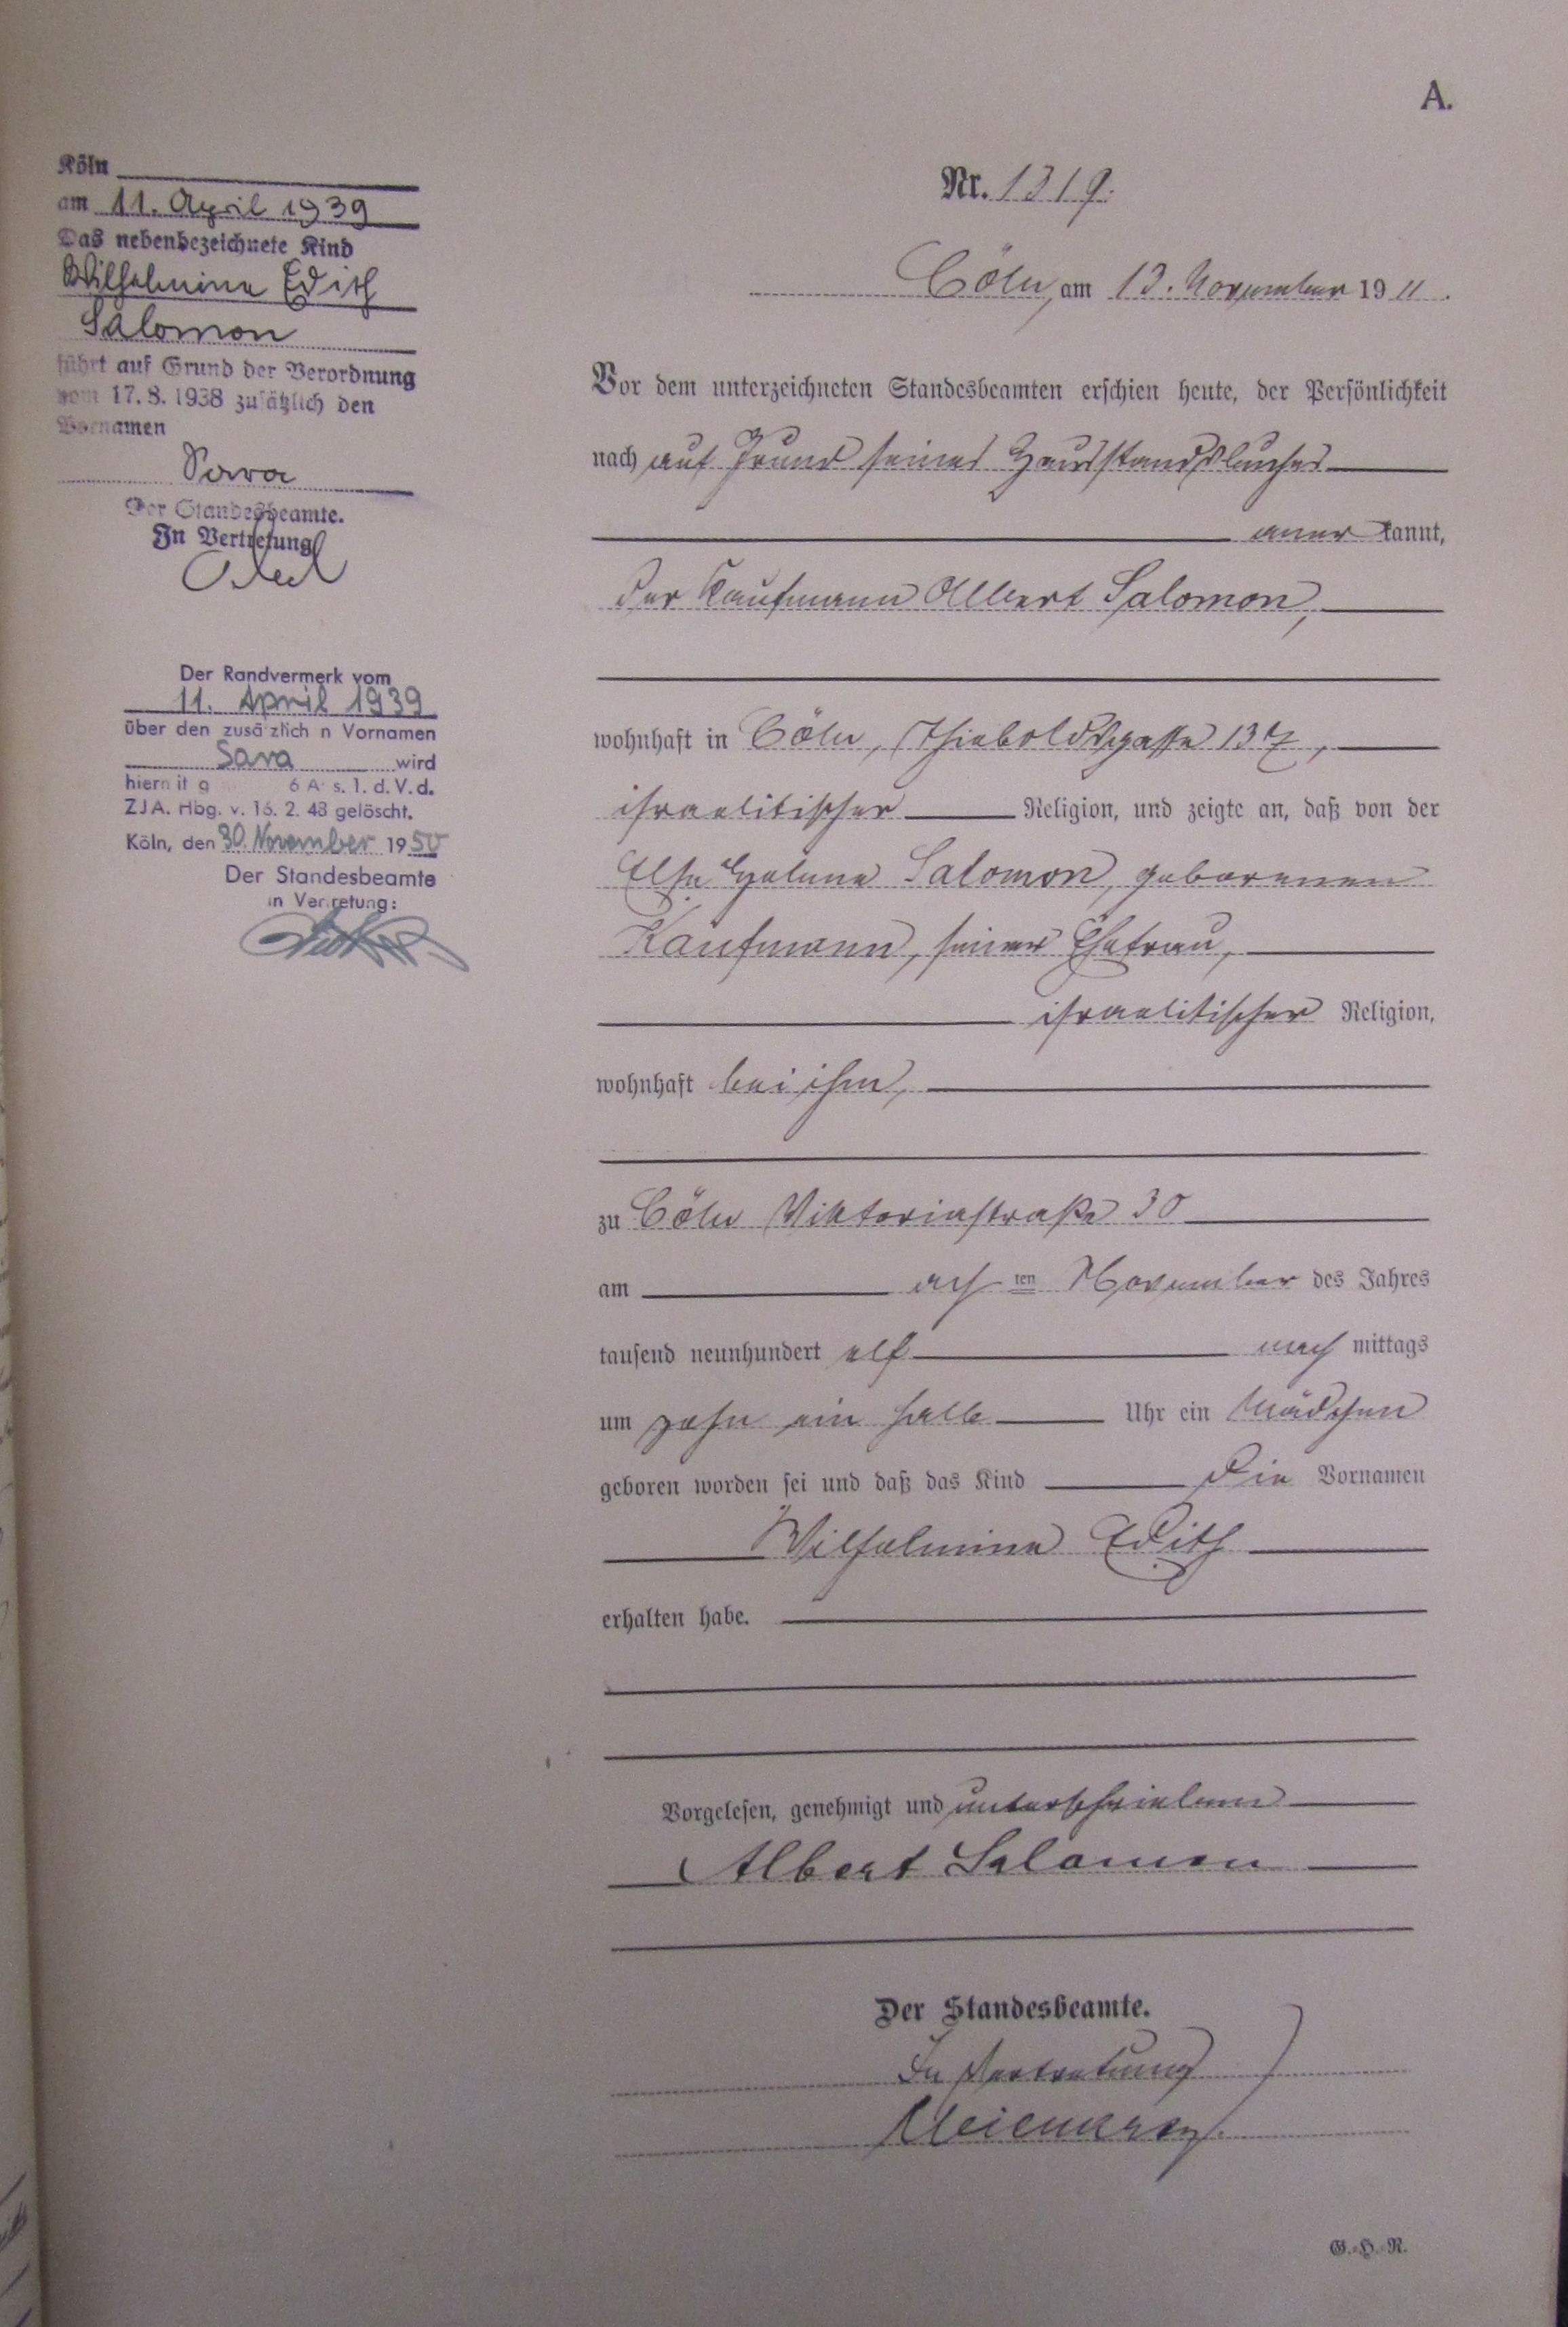 A.
Köln
am 11. April 1939
Das nebenbezeichnete Kind
Wilhelmine Edith
Salomon
führt auf Grund der Verordnung
vom 17. 8. 1938 zusätzlich den
Vornamen
Sara
Der Standesbeamte.
In Vertretung
Der Randvermerk vom
11. April 1939
über den zusätzlich n Vornamen
Sara wird
hiermit g 6 A s. 1. d. V. d.
ZJA. Hbg. v. 16. 2. 48 gelöscht.
Köln, den 30. November 1950
Der Standesbeamte
in Vertretung:
Nr. 1319.
Cöln, am 13. November 1911.
Vor dem unterzeichneten Standesbeamten erschien heute, der Persönlichkeit
nach auf Grund seines Hausstandsbuches
anerkannt,
der Kaufmann Albert Salomon,
wohnhaft in Cöln, Thieboldsgasse 137,
israelitischer Religion, und zeigte an, daß von der
Else Helene Salomon, geborenen
Kaufmann, seiner Ehefrau,
israelitischer Religion,
wohnhaft bei ihm,
zu Cöln Viktoriastraße 30
am achten November des Jahres
tausend neunhundert elf nachmittags
um zehn ein halb Uhr ein Mädchen
geboren worden sei und daß das Kind die Vornamen
Wilhelmine Edith
erhalten habe.
Vorgelesen, genehmigt und unterschrieben
Albert Salomon
Der Standesbeamte.
In Vertretung
G.-H. R.